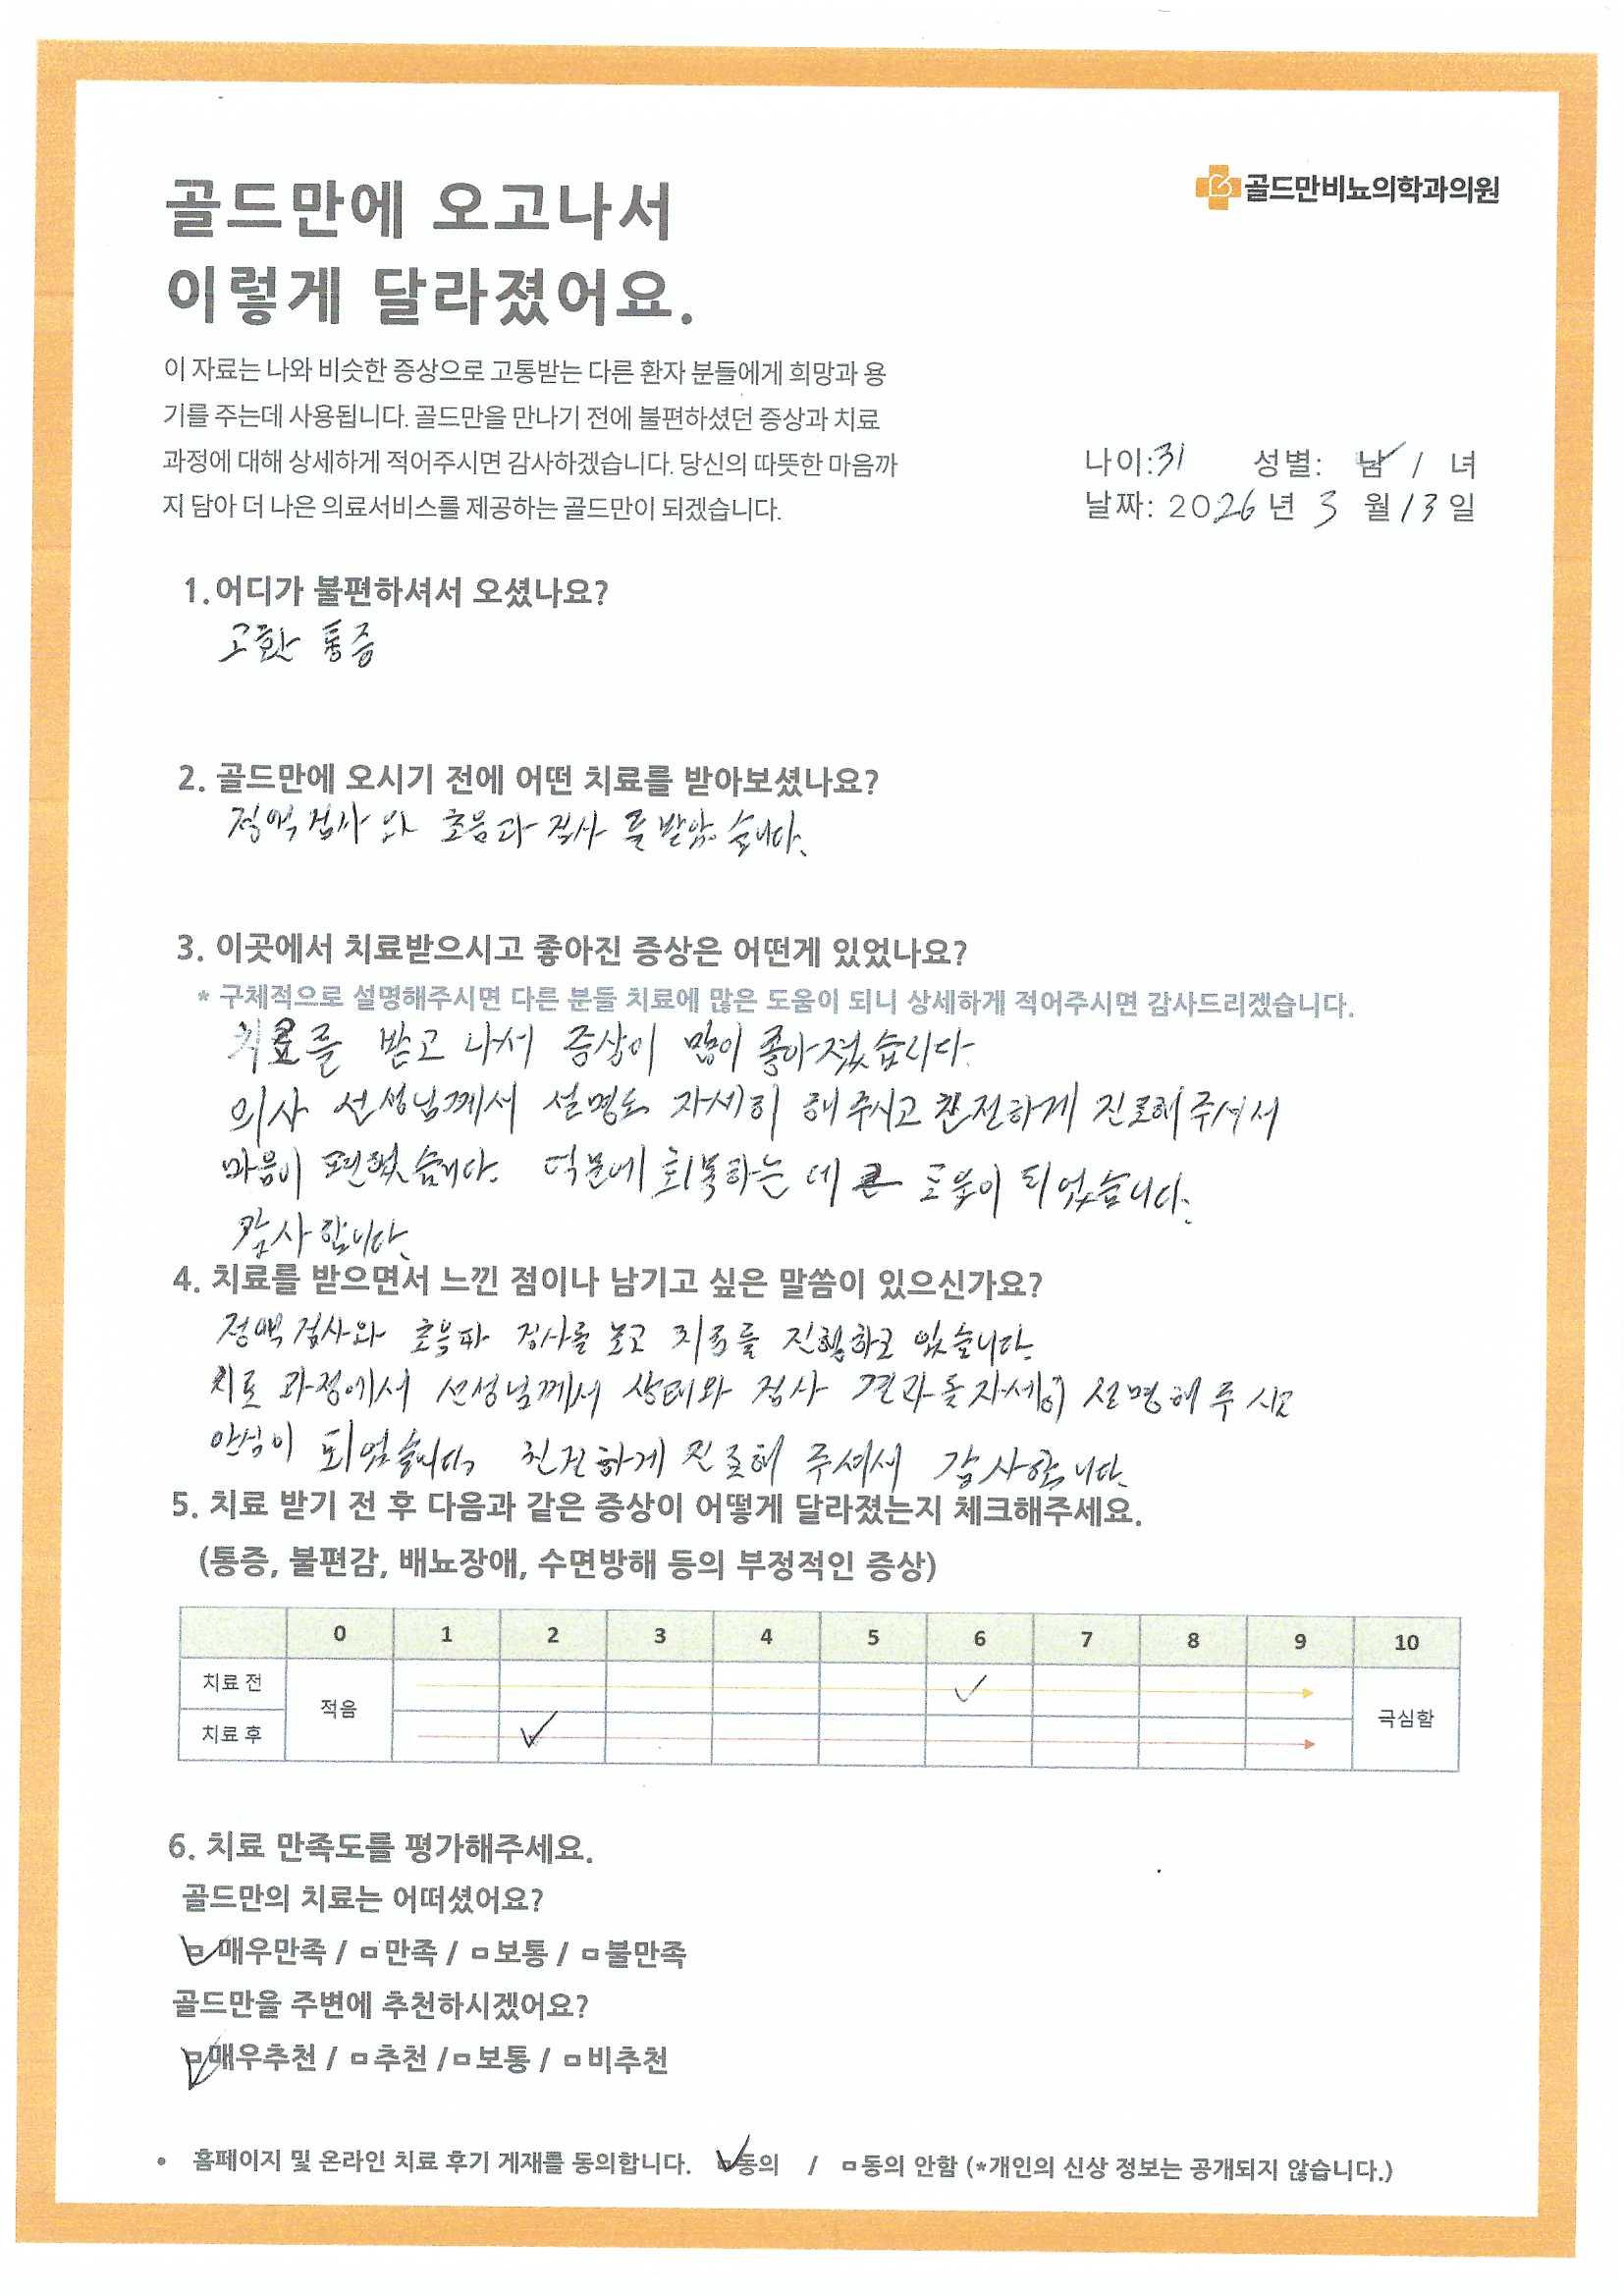 골드만비뇨의학과의원
골드만에 오고나서
이렇게 달라졌어요.
이 자료는 나와 비슷한 증상으로 고통받는 다른 환자 분들에게 희망과 용
기를 주는데 사용됩니다. 골드만을 만나기 전에 불편하셨던 증상과 치료
과정에 대해 상세하게 적어주시면 감사하겠습니다. 당신의 따뜻한 마음까
지 담아 더 나은 의료서비스를 제공하는 골드만이 되겠습니다.
나이:31 성별: 남 / 녀
날짜: 2026년 3 월 13 일
1.어디가 불편하셔서 오셨나요?
고환 통증
2. 골드만에 오시기 전에 어떤 치료를 받아보셨나요?
정액검사 와 초음파 검사 를 받았습니다.
3. 이곳에서 치료받으시고 좋아진 증상은 어떤게 있었나요?
* 구체적으로 설명해주시면 다른 분들 치료에 많은 도움이 되니 상세하게 적어주시면 감사드리겠습니다.
치료를 받고 나서 증상이 많이 좋아졌습니다.
의사 선생님께서 설명도 자세히 해주시고 친절하게 진료해 주셔서
마음이 편했습니다. 덕분에 회복하는 데 큰 도움이 되었습니다.
감사합니다.
4. 치료를 받으면서 느낀 점이나 남기고 싶은 말씀이 있으신가요?
정액검사와 초음파 검사를 보고 치료를 진행하고 있습니다.
치료 과정에서 선생님께서 상태와 검사 결과를 자세히 설명해 주셔
안심이 되었습니다. 친절하게 진료해 주셔서 감사합니다.
5. 치료 받기 전 후 다음과 같은 증상이 어떻게 달라졌는지 체크해주세요.
(통증, 불편감, 배뇨장애, 수면방해 등의 부정적인 증상)
0 1 2 3 4 5 6 7 8 9 10
치료 전 ✓
적음 극심함
치료 후 ✓
6. 치료 만족도를 평가해주세요.
골드만의 치료는 어떠셨어요?
☑ 매우만족 / □ 만족 / □ 보통 / □ 불만족
골드만을 주변에 추천하시겠어요?
☑ 매우추천 / □ 추천 / □ 보통 / □ 비추천
• 홈페이지 및 온라인 치료 후기 게재를 동의합니다. ☑동의 / □동의 안함 (*개인의 신상 정보는 공개되지 않습니다.)